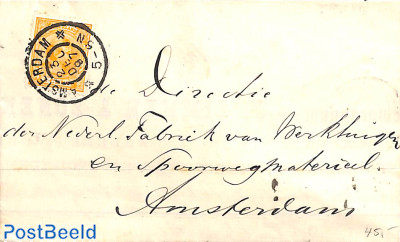 AMSTERDAM 5-6N
de Directie
der Nederl. Fabriek van Werktuigen
en Spoorwegmaterieel.
Amsterdam
45,-
PostBeeld